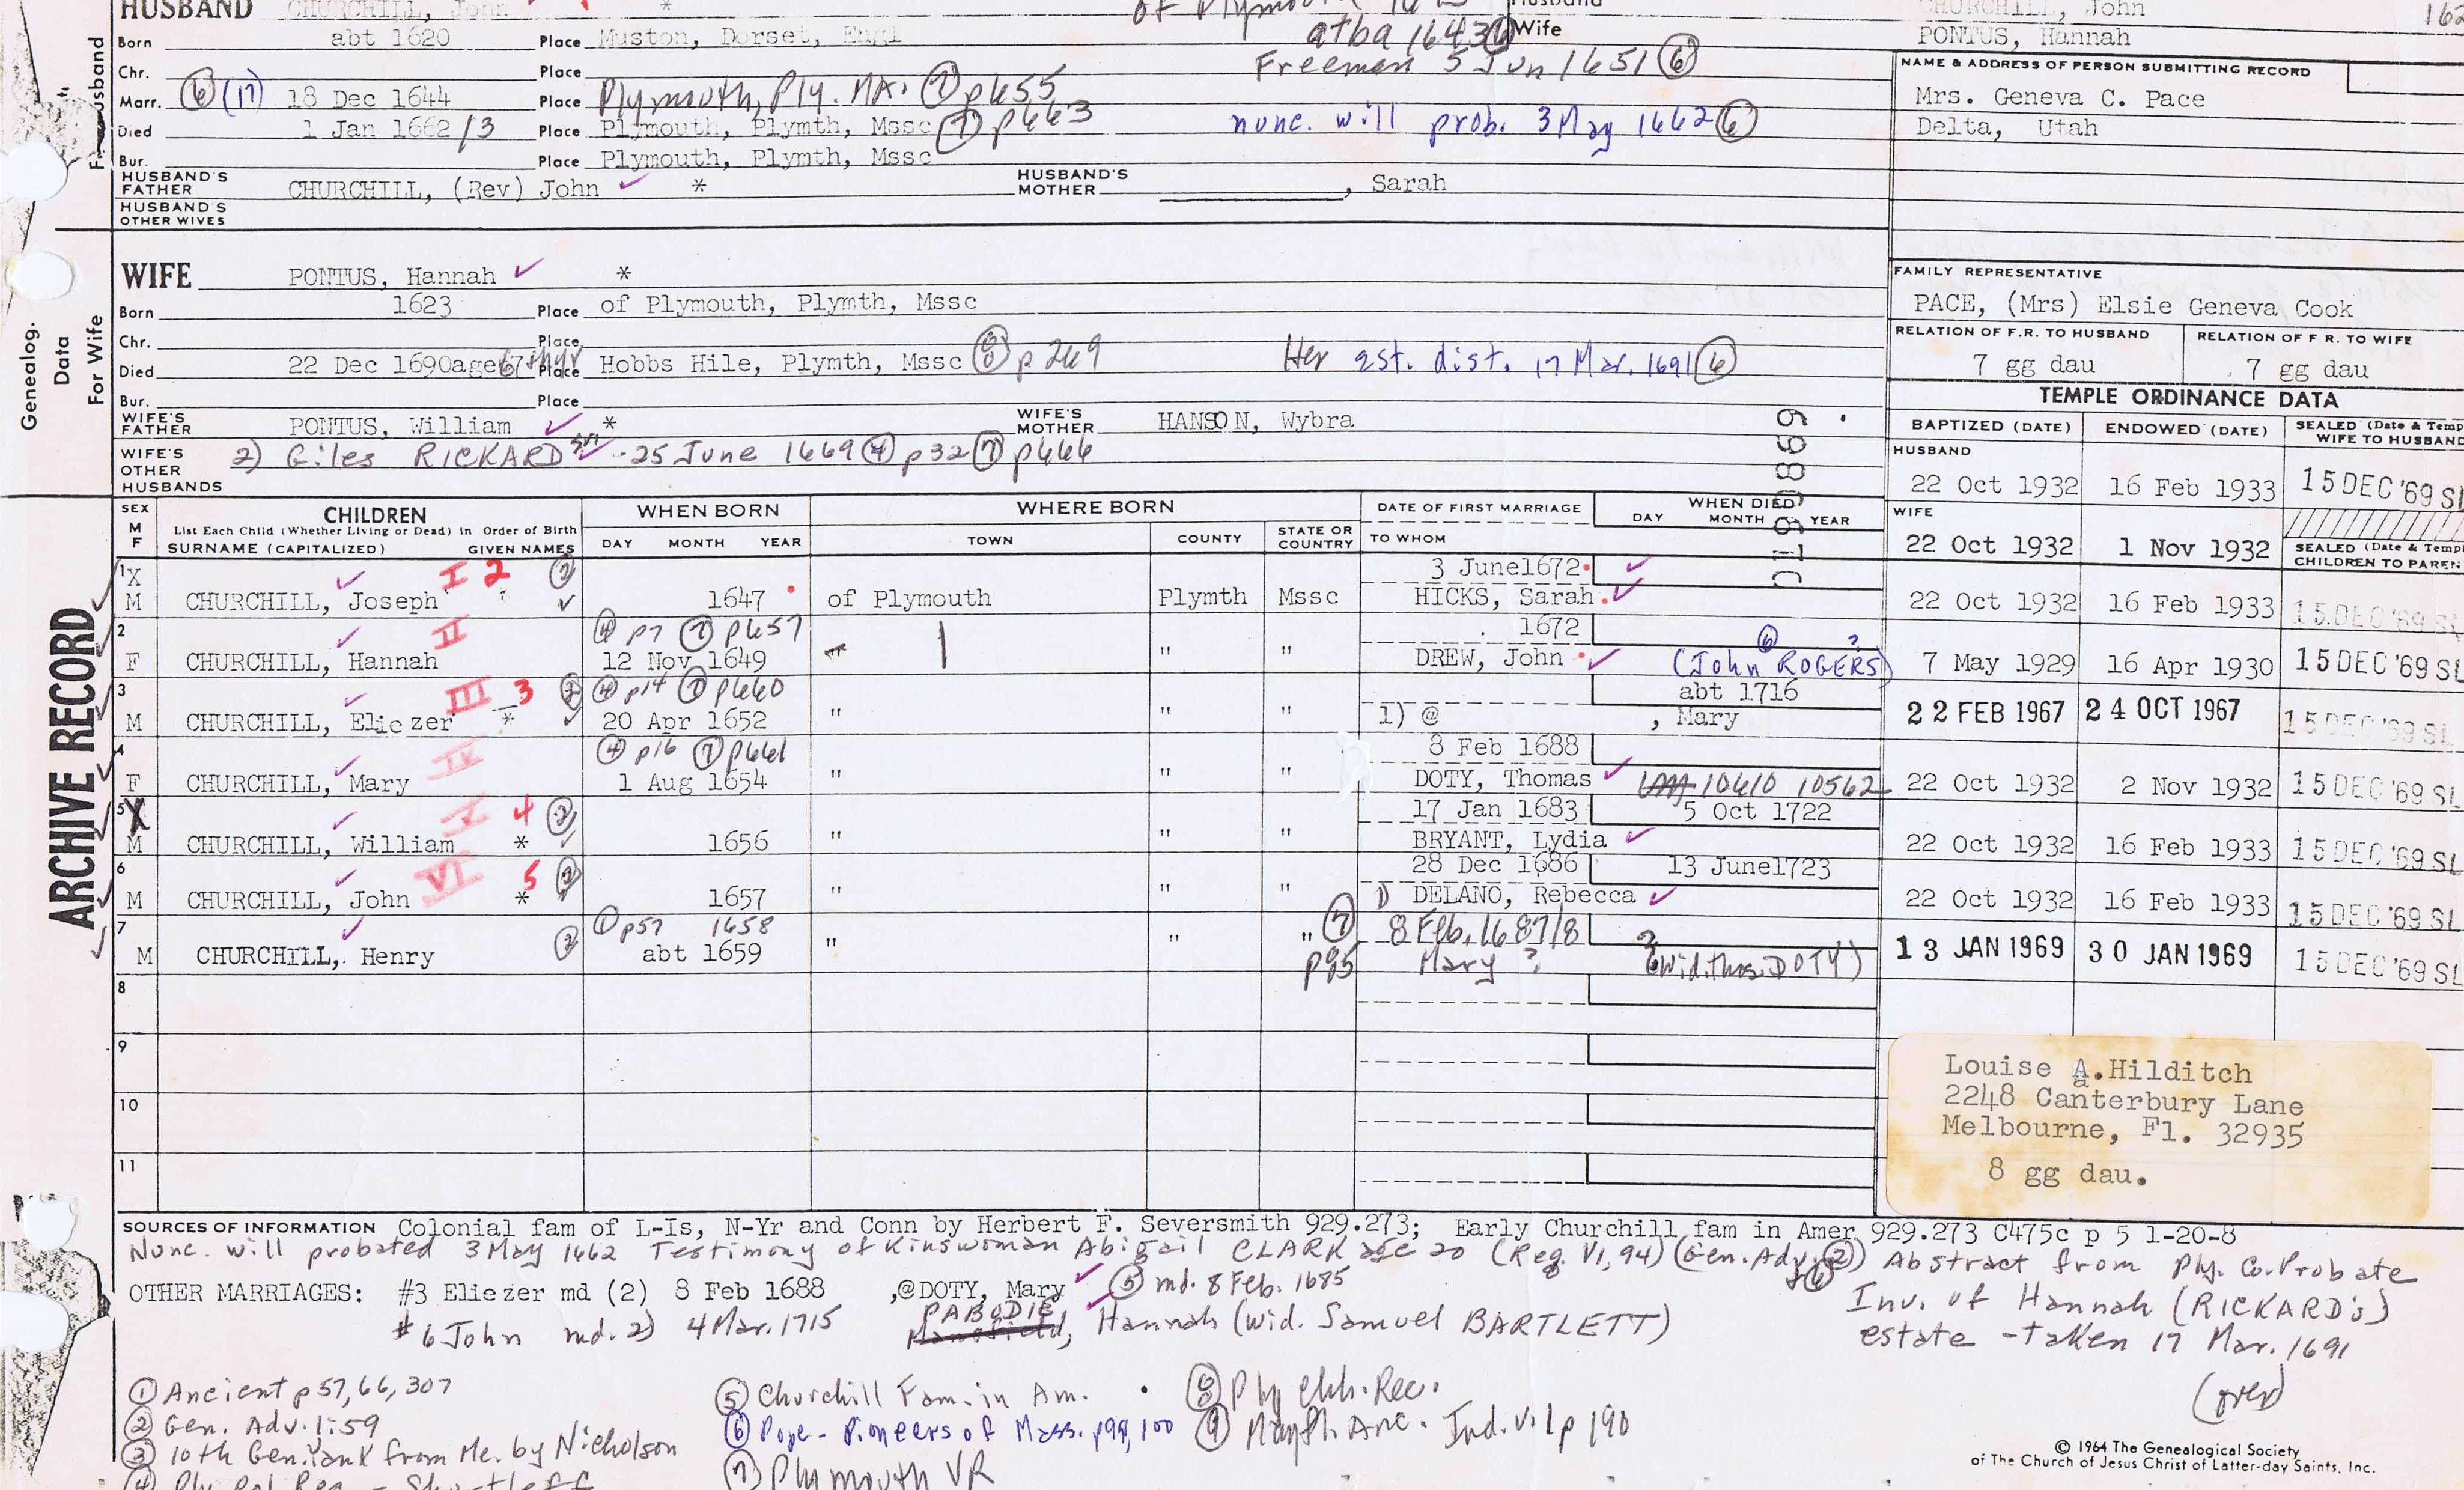 HUSBAND CHURCHILL, John *
of Plymouth
Husband
CHURCHILL, John
162
Born abt 1620 Place Muston, Dorset, Engl
atba 1643 (6) Wife
PONTUS, Hannah
Chr. Place
Freeman 5 Jun 1651 (6)
NAME & ADDRESS OF PERSON SUBMITTING RECORD
Marr. (6) (17) 18 Dec 1644 Place Plymouth, Ply. MA. (7) p655
Mrs. Geneva C. Pace
Died 1 Jan 1662/3 Place Plymouth, Plymth, Mssc (7) p663
nunc. will prob. 3 May 1662 (6)
Delta, Utah
Bur. Place Plymouth, Plymth, Mssc
HUSBAND'S FATHER CHURCHILL, (Rev) John ✓ *
HUSBAND'S MOTHER , Sarah
HUSBAND'S OTHER WIVES
Husband
Genealog. Data For Wife
WIFE PONTUS, Hannah ✓ *
FAMILY REPRESENTATIVE
Born 1623 Place of Plymouth, Plymth, Mssc
PACE, (Mrs) Elsie Geneva Cook
Chr. Place
RELATION OF F.R. TO HUSBAND RELATION OF F R. TO WIFE
Died 22 Dec 1690 age 67 Place Hobbs Hile, Plymth, Mssc (8) p 269
Her est. dist. 17 Mar. 1691 (6)
7 gg dau 7 gg dau
Bur. Place
TEMPLE ORDINANCE DATA
WIFE'S FATHER PONTUS, William ✓ *
WIFE'S MOTHER HANSON, Wybra
BAPTIZED (DATE) ENDOWED (DATE) SEALED (Date & Temp WIFE TO HUSBAND
WIFE'S OTHER HUSBANDS 2) Giles RICKARD Sr. ✓ 25 June 1669 (4) p32 (7) p666
HUSBAND
22 Oct 1932 16 Feb 1933 15 DEC '69 SL
WIFE
22 Oct 1932 1 Nov 1932
SEALED (Date & Temp CHILDREN TO PAREN
SEX M F
CHILDREN
List Each Child (Whether Living or Dead) in Order of Birth
SURNAME (CAPITALIZED) GIVEN NAMES
WHEN BORN
DAY MONTH YEAR
WHERE BORN
TOWN COUNTY STATE OR COUNTRY
DATE OF FIRST MARRIAGE
TO WHOM
WHEN DIED
DAY MONTH YEAR
ARCHIVE RECORD
1 X I 2 (2) 3 June1672
M CHURCHILL, Joseph 1647 of Plymouth Plymth Mssc HICKS, Sarah. 22 Oct 1932 16 Feb 1933 15 DEC '69 SL
2 II (4) p7 (7) p657 1672 (6) ?
F CHURCHILL, Hannah 12 Nov 1649 " " DREW, John (John ROGERS) 7 May 1929 16 Apr 1930 15 DEC '69 SL
3 III 3 (2) (4) p14 (7) p660 abt 1716
M CHURCHILL, Eliezer * 20 Apr 1652 " " " 1) @ , Mary 22 FEB 1967 24 OCT 1967 15 DEC '69 SL
4 IV (4) p16 (7) p661 8 Feb 1688
F CHURCHILL, Mary 1 Aug 1654 " " " DOTY, Thomas 10610 10562 22 Oct 1932 2 Nov 1932 15 DEC '69 SL
5 X V 4 (2) 17 Jan 1683 5 Oct 1722
M CHURCHILL, William * 1656 " " " BRYANT, Lydia 22 Oct 1932 16 Feb 1933 15 DEC '69 SL
6 VI 5 (2) 28 Dec 1686 13 June1723
M CHURCHILL, John * 1657 " " " 1) DELANO, Rebecca 22 Oct 1932 16 Feb 1933 15 DEC '69 SL
7 (1) p57 1658 (7) 8 Feb. 1687/8
M CHURCHILL, Henry (2) abt 1659 " " " p95 Mary ? (Wid. Thos. DOTY) 13 JAN 1969 30 JAN 1969 15 DEC '69 SL
8
9
10
11
Louise A. Hilditch
2248 Canterbury Lane
Melbourne, Fl. 32935
8 gg dau.
SOURCES OF INFORMATION Colonial fam of L-Is, N-Yr and Conn by Herbert F. Seversmith 929.273; Early Churchill fam in Amer 929.273 C475c p 5 1-20-8
Nunc. will probated 3 May 1662 Testimony of Kinswoman Abigail CLARK age 20 (Reg. VI, 94) (Gen. Adv. (2) Abstract from Ply. Co. Probate
OTHER MARRIAGES: #3 Eliezer md (2) 8 Feb 1688 ,@DOTY, Mary ✓ (5) md. 8 Feb. 1685
Inv. of Hannah (RICKARD's)
#6 John md. 2) 4 Mar. 1715 PABODIE, Hannah (wid. Samuel BARTLETT)
estate - taken 17 Mar. 1691
(over)
(1) Ancient p 57, 66, 307
(2) Gen. Adv. 1:59
(3) 10th Gen. Yank from Me. by Nicholson
(4) Ply. Col. Rec. - Shurtleff
(5) Churchill Fam. in Am.
(6) Pope - Pioneers of Mass. p99, 100
(7) Plymouth VR
(8) Ply Chh. Rec.
(9) Mayfl. Anc. Ind. v. 1 p 190
© 1964 The Genealogical Society
of The Church of Jesus Christ of Latter-day Saints, Inc.